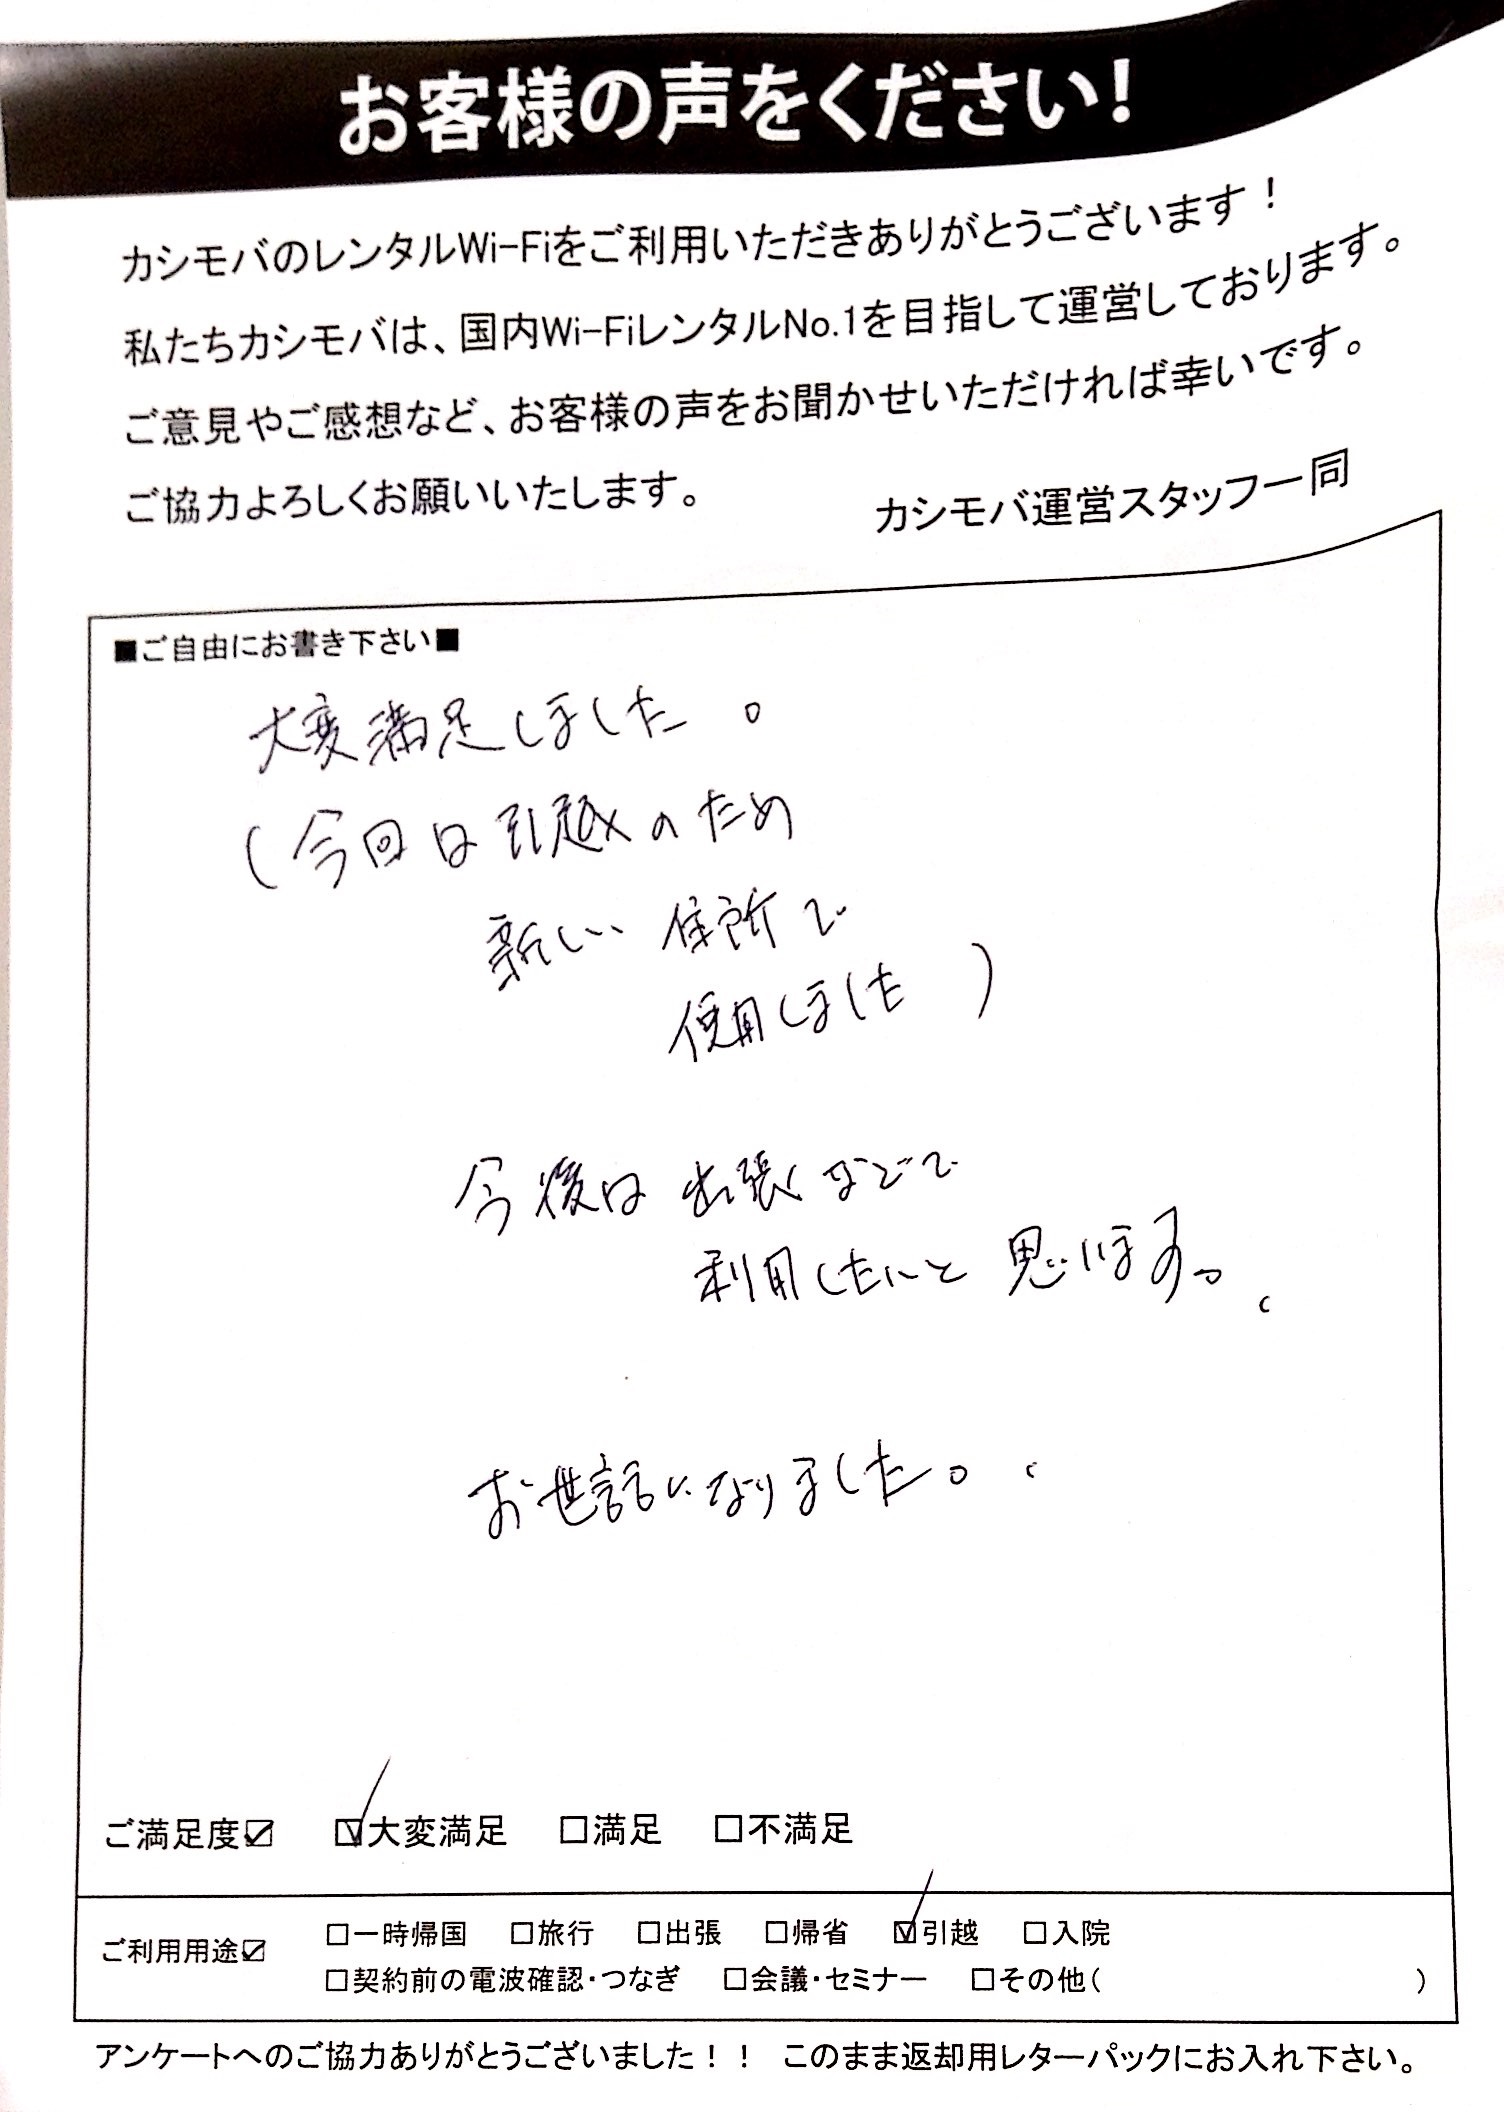 お客様の声をください!
カシモバのレンタルWi-Fiをご利用いただきありがとうございます!
私たちカシモバは、国内Wi-FiレンタルNo.1を目指して運営しております。
ご意見やご感想など、お客様の声をお聞かせいただければ幸いです。
ご協力よろしくお願いいたします。
カシモバ運営スタッフ一同
■ご自由にお書き下さい■
大変満足しました。
(今回は引越のため
新しい住所で
使用しました)
今後は出張などで
利用したいと思います。
お世話になりました。
ご満足度☑ ☑大変満足 □満足 □不満足
ご利用用途☑ □一時帰国 □旅行 □出張 □帰省 ☑引越 □入院
□契約前の電波確認・つなぎ □会議・セミナー □その他( )
アンケートへのご協力ありがとうございました!! このまま返却用レターパックにお入れ下さい。